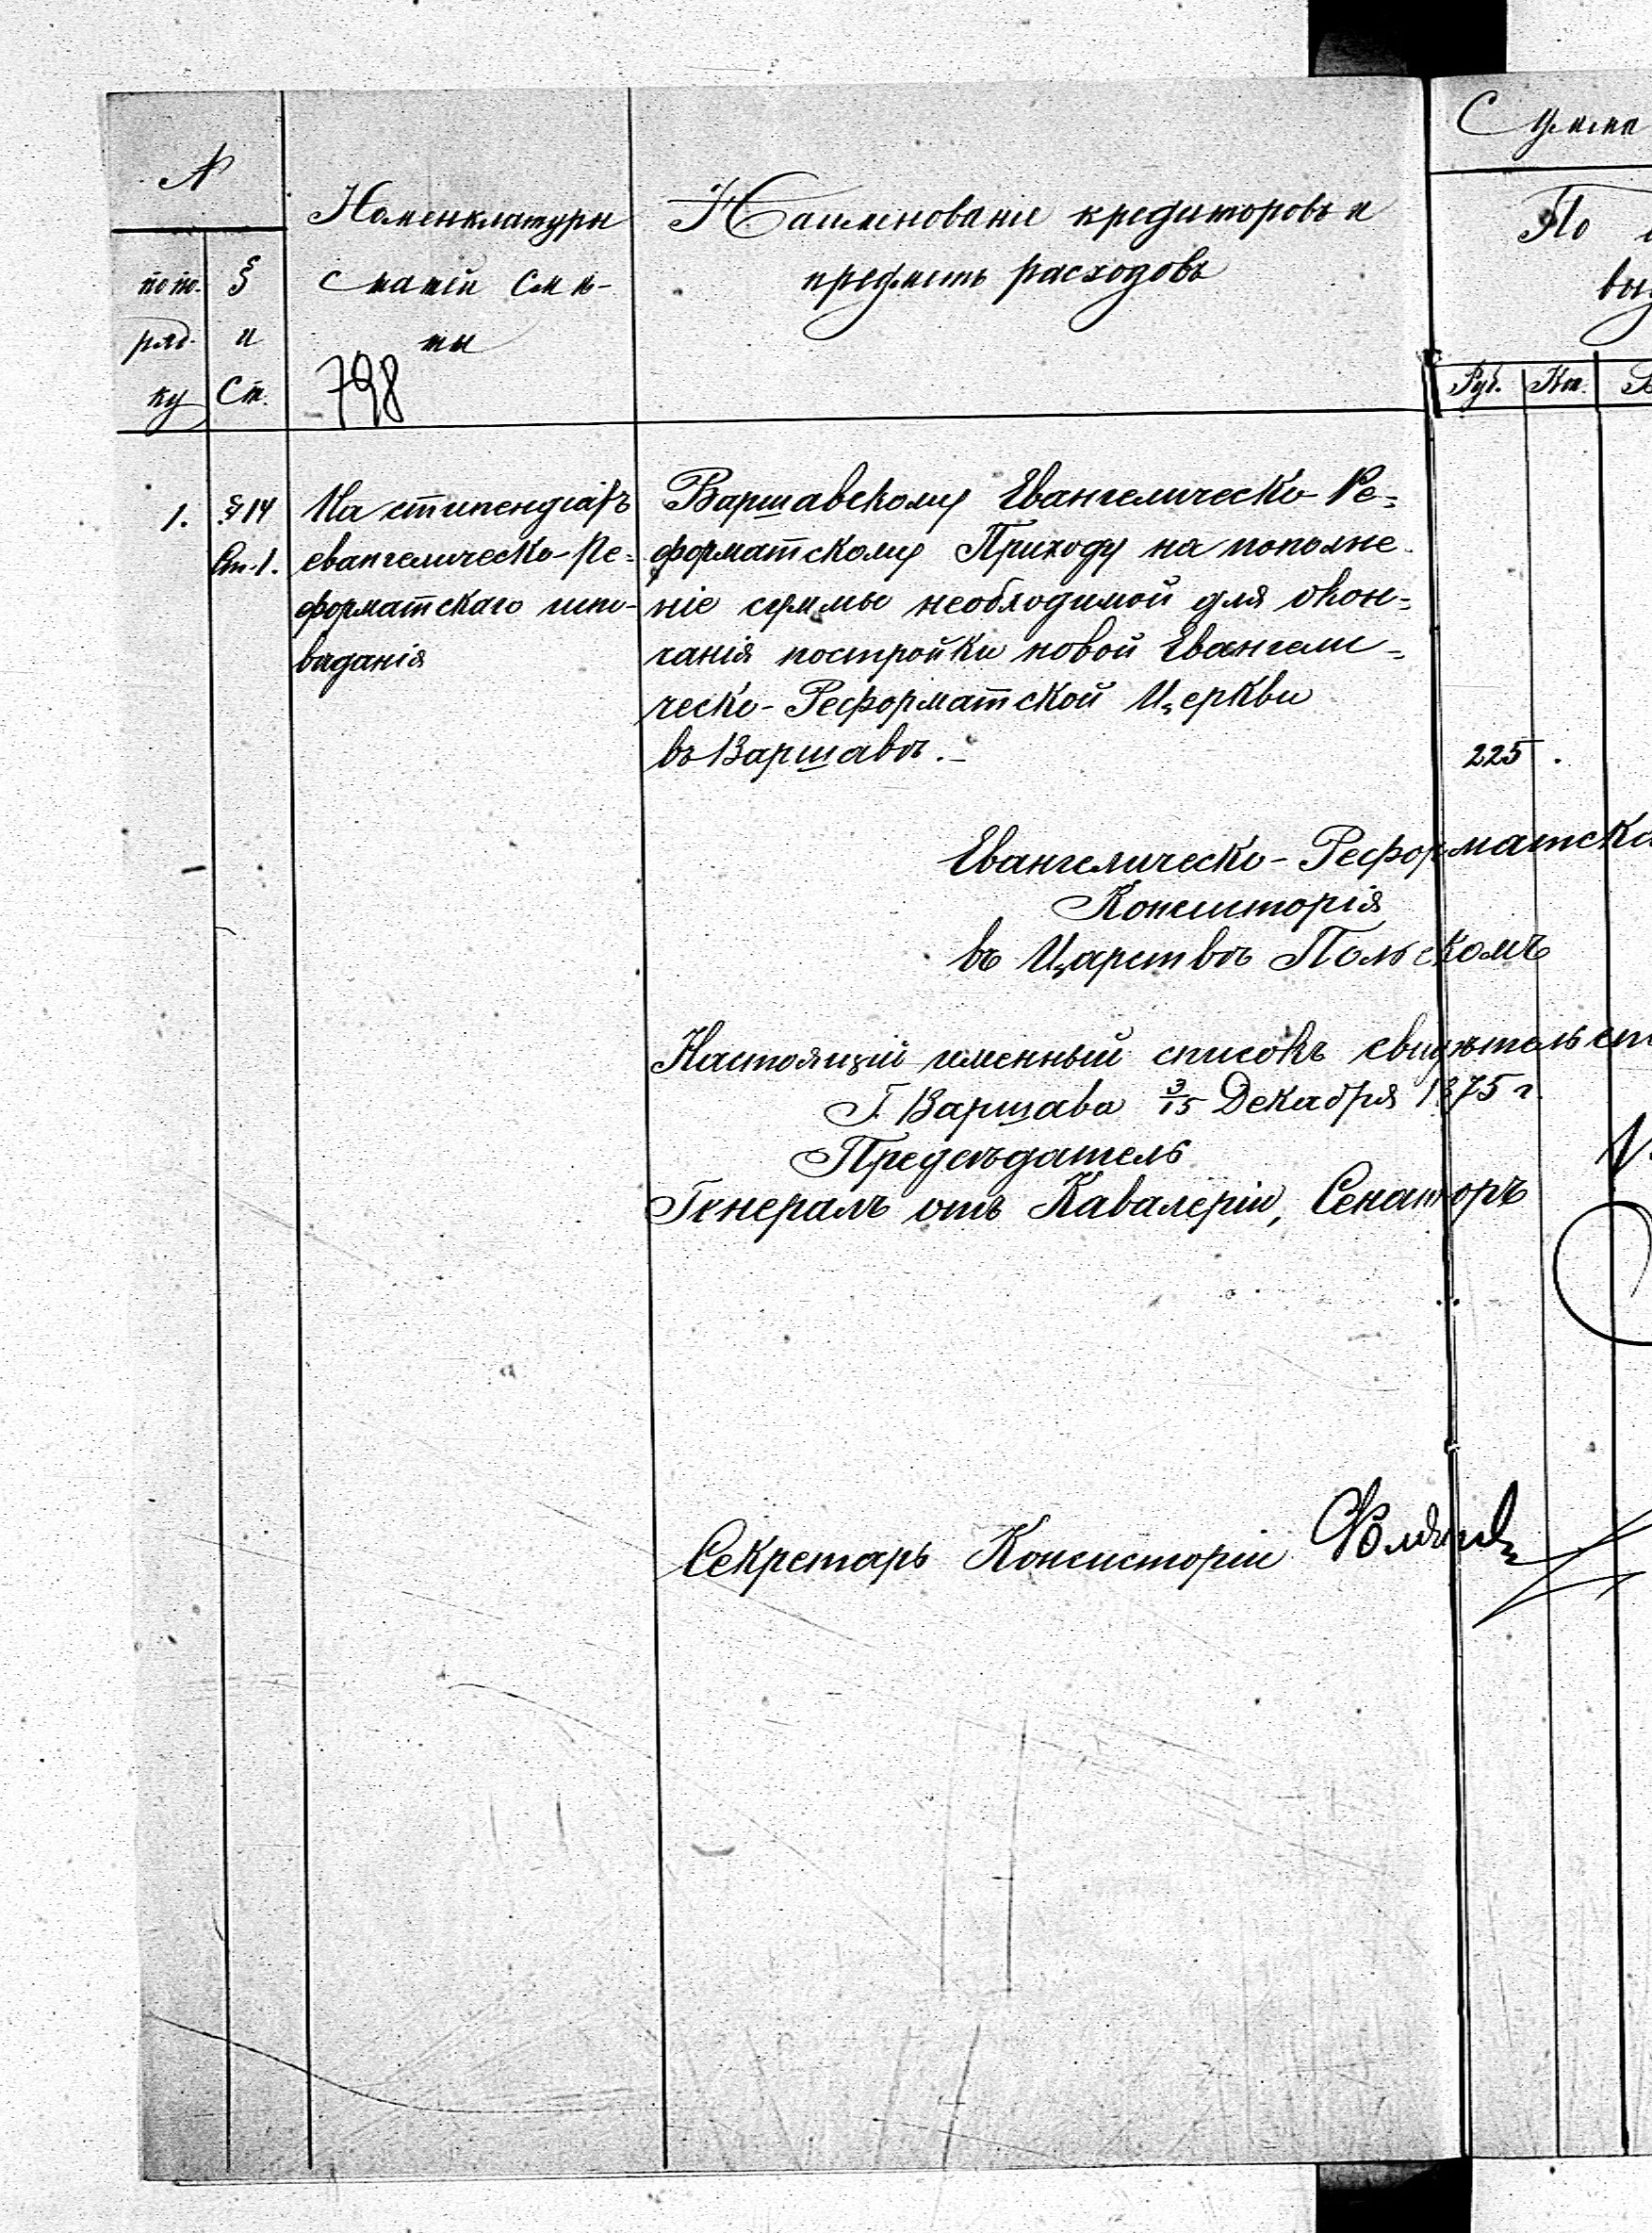 №
по по-
ряд-
ку
§
и
Ст.
Номенклатура
статей смѣ-
ты
798
Наименованіе кредиторовъ и
предметъ расходовъ
Сумма
По
Руб.
Коп.
1.
§ 14
Ст. 1.
На стипендіатъ
евангелическо-Ре-
форматскаго испо-
вѣданія
Варшавскому Евангелическо-Ре-
форматскому Приходу на пополне-
ніе суммы необходимой для окон-
чанія постройки новой Евангели-
ческо-Реформатской Церкви
въ Варшавѣ.
225
Евангелическо-Реформатска
Консисторія
въ Царствѣ Польскомъ
Настоящій именный списокъ свидѣтельст
Г. Варшава 3/15 Декабря 1875 г.
Предсѣдатель
Генералъ отъ Кавалеріи, Сенаторъ
Секретарь Консисторіи